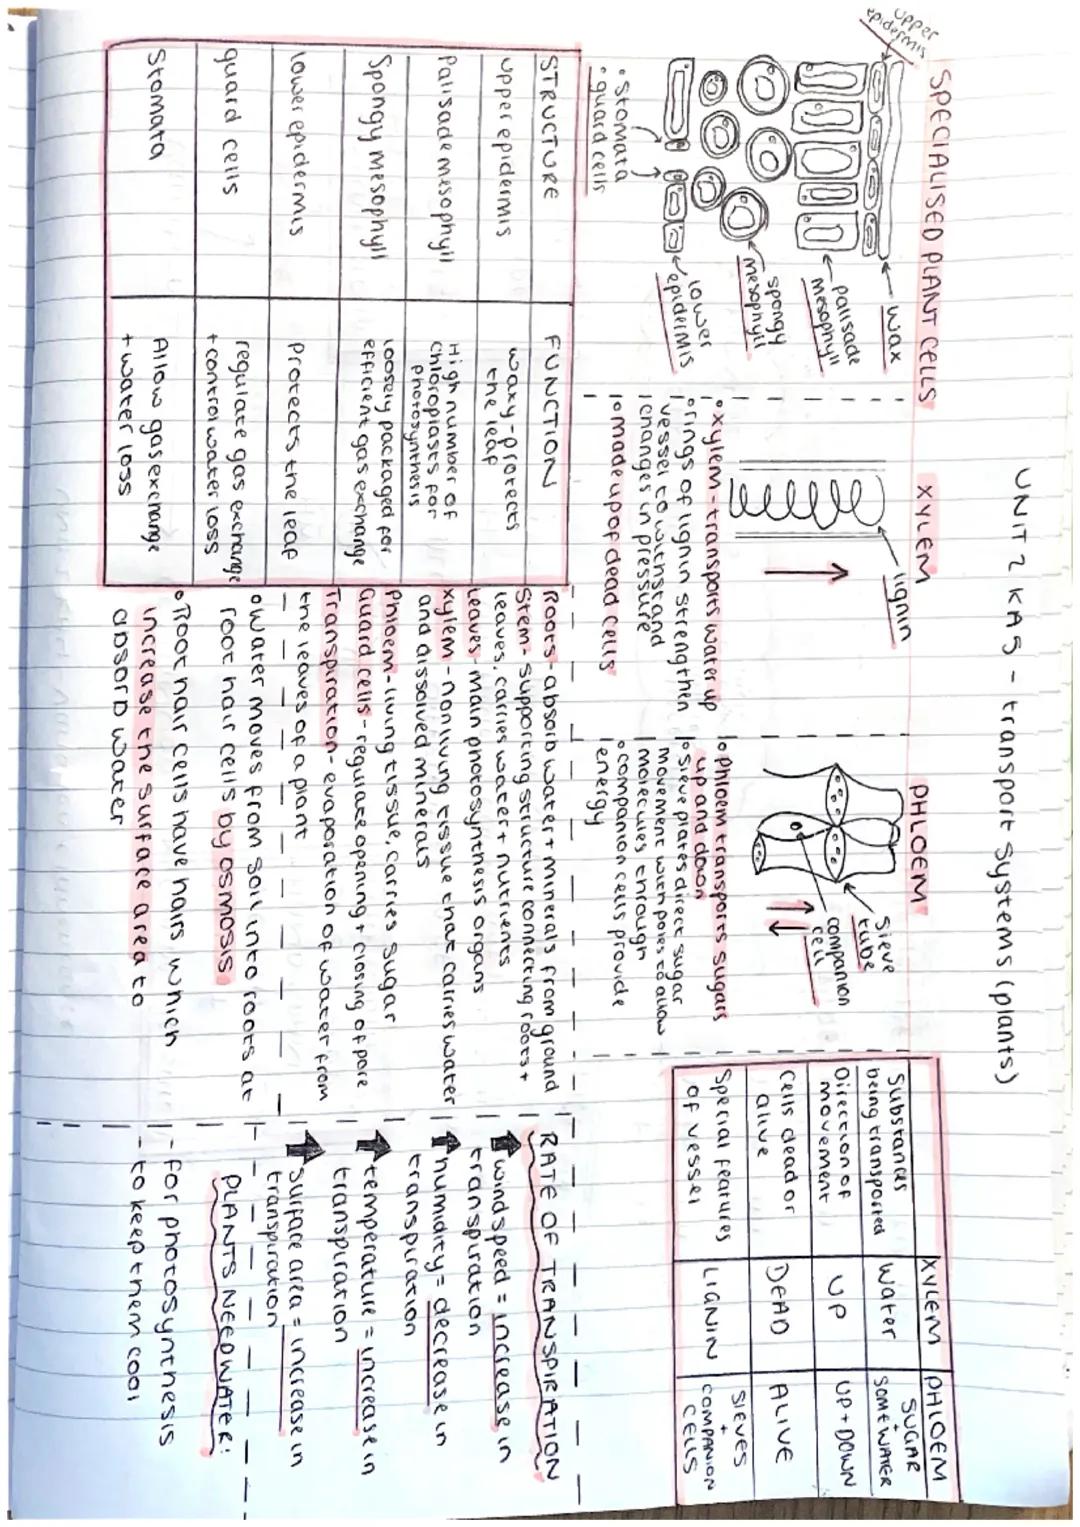 UNIT 2 KA5 - transport systems (plants)
SPECIALISED PLANT CELLS
upper
epidermis
wax
palisade
mesophyll
spongy
mesophyll
lower
epidermis
• stomata
• guard cells
XYLEM
lignin
• xylem - transports water up
• rings of lignin strengthen
vessel to withstand
changes in pressure
• made up of dead cells
PHLOEM
sieve
tube
companion
cell
• phloem transports sugars
up and down
• sieve plates direct sugar
movement with pores to allow
molecules through
• companion cells provide
energy
XYLEM PHLOEM
Substances
being transported
Water
SUGAR
+
SOME WATER
Direction of
movement
UP
UP + DOWN
Cells dead or
alive
DEAD
ALIVE
Special features
of vessel
LIGNIN
SIEVES
+
COMPANION
CELLS
STRUCTURE FUNCTION
upper epidermis
waxy - protects
the leaf
Palisade mesophyll
High number of
chloroplasts for
photosynthesis
Spongy mesophyll
loosely packaged for
efficient gas exchange
lower epidermis
protects the leaf
guard cells
regulate gas exchange
+ control water loss
Stomata
Allow gas exchange
+ water loss
Roots - absorb water + minerals from ground
Stem - supporting structure connecting roots +
leaves, carries water + nutrients
Leaves - main photosynthesis organs
xylem - nonliving tissue that carries water
and dissolved minerals
Phloem - living tissue, carries sugar
Guard cells - regulate opening + closing of pore
Transpiration - evaporation of water from
the leaves of a plant
• water moves from soil into roots at
root hair cells by osmosis
• Root hair cells have hairs which
increase the surface area to
absorb water
RATE OF TRANSPIRATION
windspeed = increase in
transpiration
humidity = decrease in
transpiration
temperature = increase in
transpiration
surface area = increase in
transpiration
PLANTS NEED WATER:
- for photosynthesis
- to keep them cool